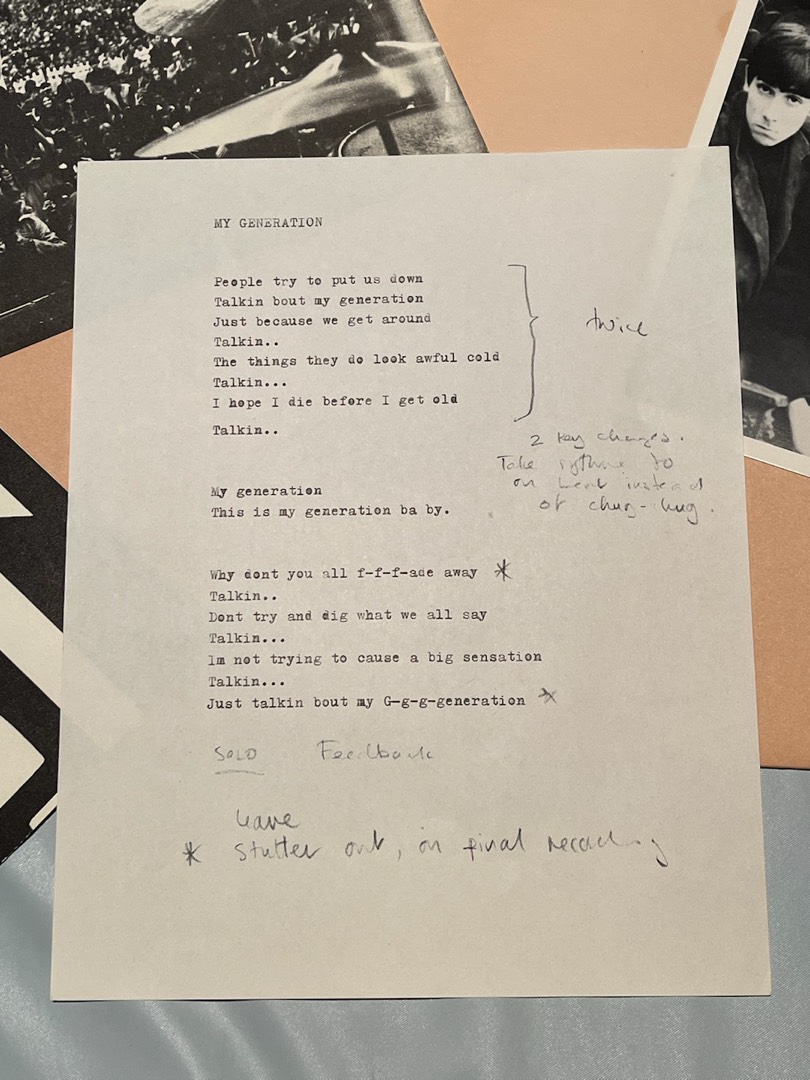 MY GENERATION
People try to put us down
Talkin bout my generation
Just because we get around
Talkin..
The things they do look awful cold
Talkin...
I hope I die before I get old
Talkin..
twice
2 key changes.
Take rythme to
on beat instead
of chug-chug.
My generation
This is my generation ba by.
Why dont you all f-f-f-ade away *
Talkin..
Dont try and dig what we all say
Talkin...
Im not trying to cause a big sensation
Talkin...
Just talkin bout my G-g-g-generation *
SOLO Feedback
leave
* stutter out, on final recording